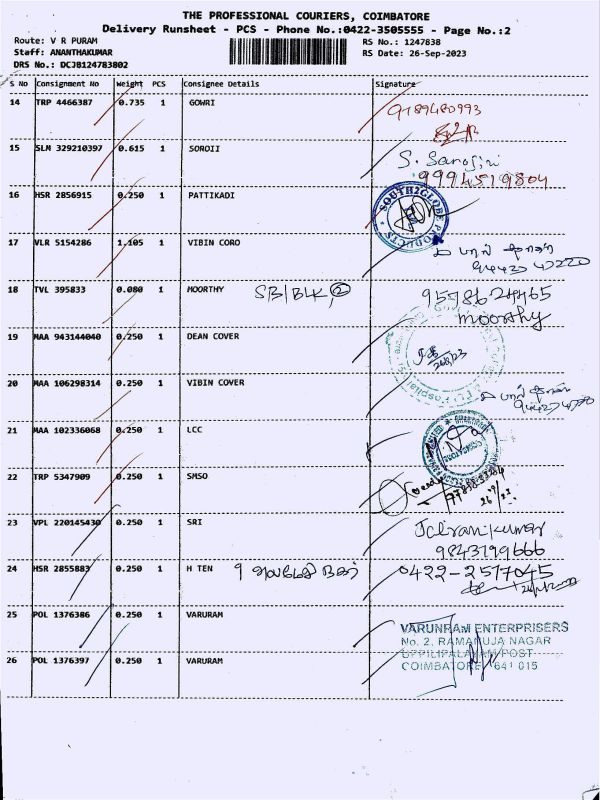 THE PROFESSIONAL COURIERS, COIMBATORE
Delivery Runsheet - PCS - Phone No.:0422-3505555 - Page No.:2
Route: V R PURAM
Staff: ANANTHAKUMAR
DRS No.: DCJB124783802
RS No.: 1247838
RS Date: 26-Sep-2023
S No Consignment No Weight PCS Consignee Details Signature
14 TRP 4466387 0.735 1 GOWRI 9789480993
15 SLM 329210397 0.615 1 SOROJI S. Sarojini
9994519804
16 HSR 2856915 0.250 1 PATTIKADI SOUTH2GLOBE PRODUCTS
17 VLR 5154286 1.105 1 VIBIN CORO
18 TVL 395833 0.080 1 MOORTHY SB/BLK, 2
moorthy
19 MAA 943144040 0.250 1 DEAN COVER
20 MAA 106298314 0.250 1 VIBIN COVER
21 MAA 102336068 0.250 1 LCC
22 TRP 5347909 0.250 1 SMSO
23 VPL 220145430 0.250 1 SRI
9843199666
24 HSR 2855883 0.250 1 H TEN 0422-2517045
25 POL 1376386 0.250 1 VARURAM VARUNRAM ENTERPRISERS
No. 2, RAMANUJA NAGAR
UPPILIPALAYAM POST
COIMBATORE 641 015
26 POL 1376397 0.250 1 VARURAM